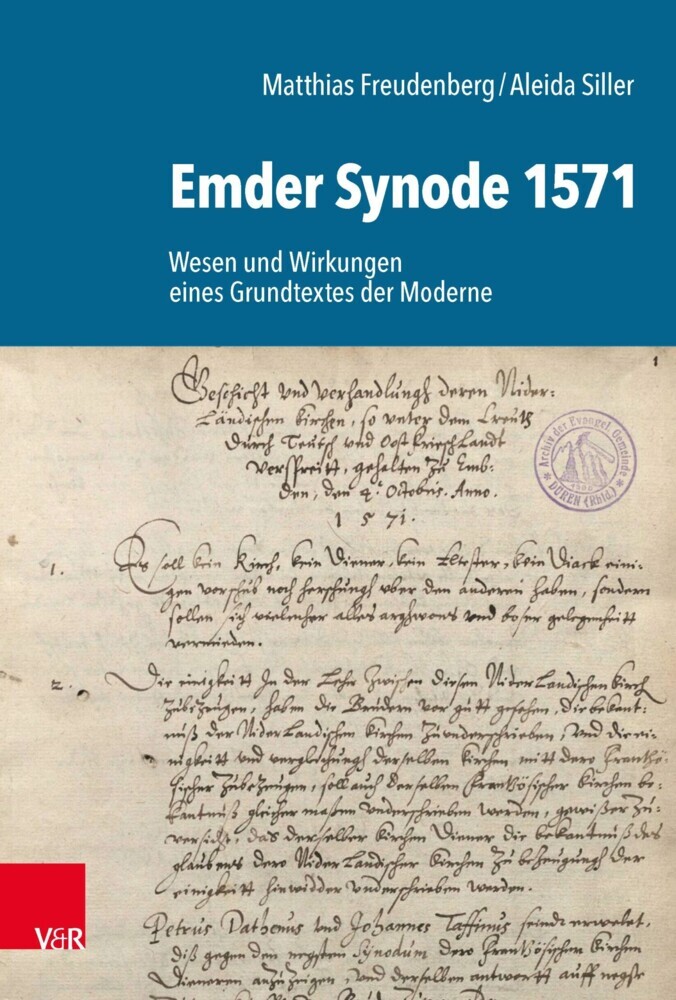 Matthias Freudenberg/Aleida Siller
Emder Synode 1571
Wesen und Wirkungen
eines Grundtextes der Moderne
1
Geschicht vnd verhandlungh deren Nider-
Ländischen kirchen, so vnter dem Creutz
durch Teutsch vnd Oost frieschLandt
verspreitt, gehalten zu Emb-
den, den 4. Octobris. Anno.
1571.
Archiv der Evangel. Gemeinde
DÜREN (Rhld.)
1. Es soll kein Kirch, kein Diener, kein Eltester, kein Diack eini-
gen vorschub noch herschungh vber den anderen haben, sondern
sollen sich vielmeher alles arghwons vnd boser gelegenheitt
vermeiden.
2. Die einigkeitt In der Lehr zwischen diesen NiderLandischen kirchen
zubezeugen, haben die Brudern vor gutt gesehen, die bekant-
nuß der NiderLandischen kirchen zu vnderschrieben, Vnd die ei-
nigkeitt vnd vergleichungh derselben kirchen mitt dero frantzö-
sischer zubezeugen, soll auch derselben frantzösischer kirchen be-
kantnuß gleicher maßen vnderschrieben werden, gewißer zu-
versicht, das derselber kirchen Diener die bekantnuß des
glaubens dero NiderLandischer kirchen zu bezeugungh der
einigkeitt hinwidder vnderschrieben werden.
Petrus Dathenus vnd Johannes Taffinus seindt erwelet,
diß gegen den negsten Synodum dero frantzösischen kirchen
Dieneren anzuzeigen, vnd derselben antwortt auff negste
V&R